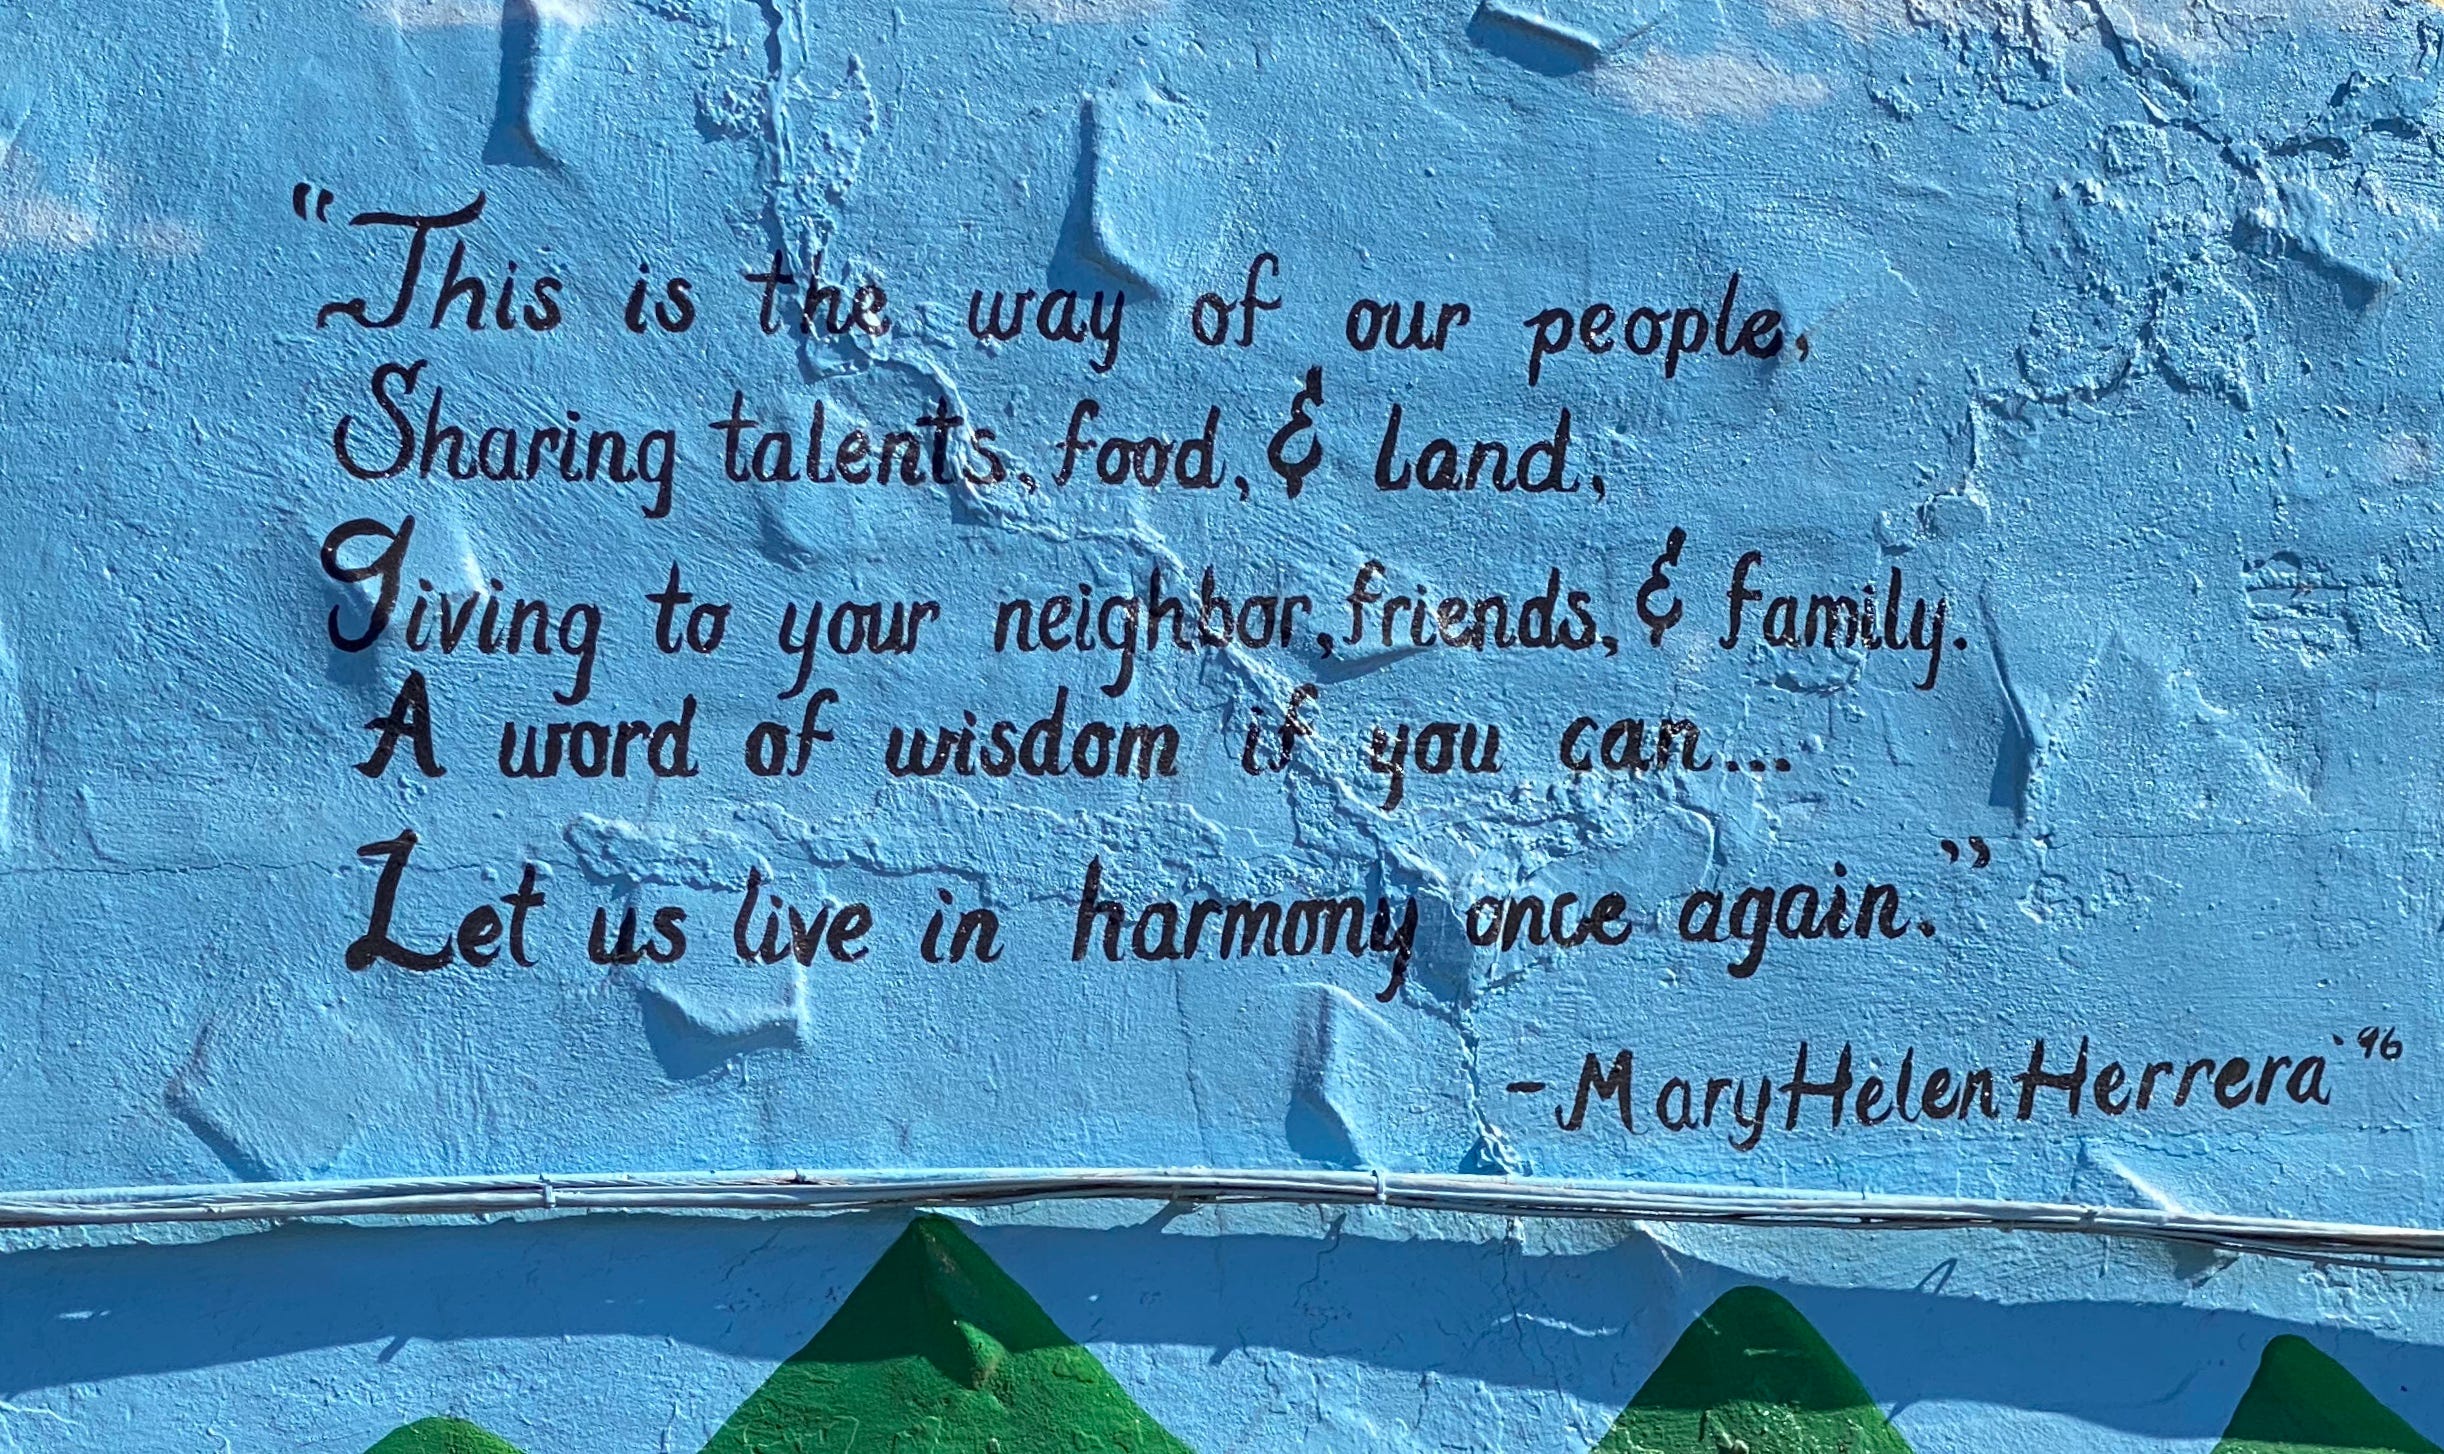 "This is the way of our people,
Sharing talents, food, & land,
Giving to your neighbor, friends, & family.
A word of wisdom if you can...
Let us live in harmony once again."
- Mary Helen Herrera '96